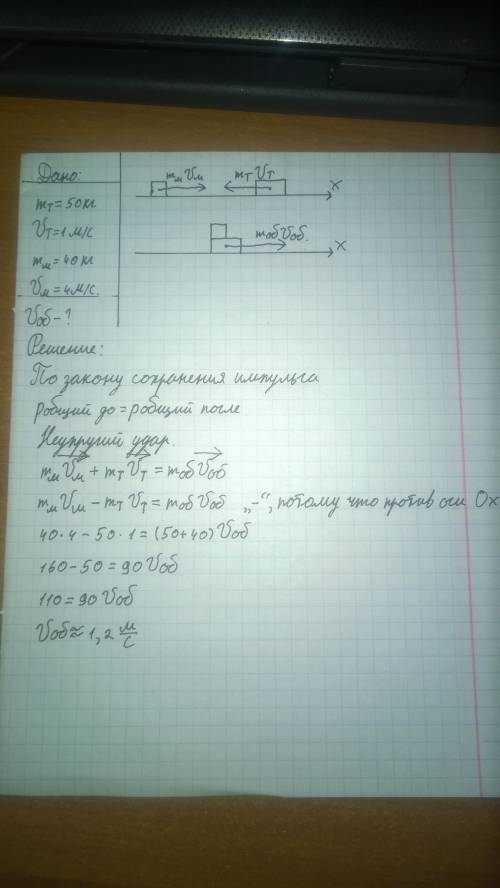 Дано:
mт = 50 кг
Vт = 1 м/с
mм = 40 кг
Vм = 4 м/с.
Vоб - ?
mмVм mтVт x
mобVоб. x
Решение:
По закону сохранения импульса
Робщий до = робщий после
Неупругий удар.
mмVм + mтVт = mобVоб
mмVм - mтVт = mобVоб „-“, потому что против оси Ox
40·4 - 50·1 = (50+40)Vоб
160 - 50 = 90Vоб
110 = 90Vоб
Vоб ≈ 1,2 м/с